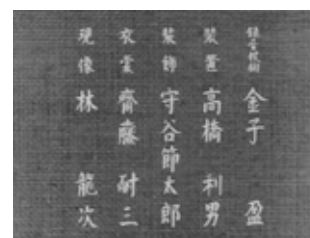 録音技術 金子 盈
装置 高橋 利男
装飾 守谷節太郎
衣裳 齋藤 耐三
現像 林 龍次